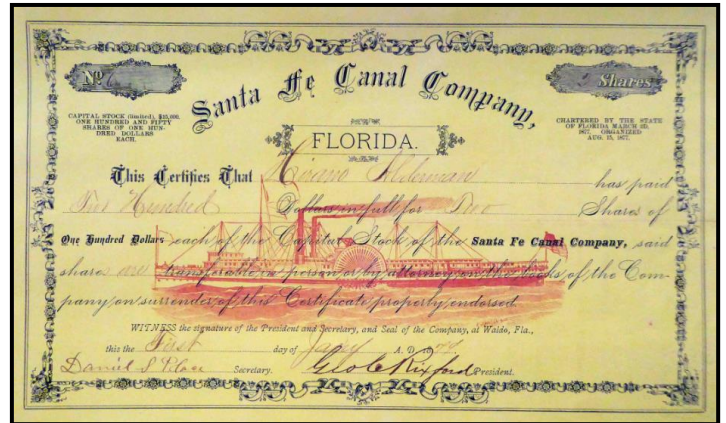 Nº 6
2 Shares
Santa Fe Canal Company,
CAPITAL STOCK (limited), $15,000.
ONE HUNDRED AND FIFTY
SHARES OF ONE HUN-
DRED DOLLARS
EACH.
CHARTERED BY THE STATE
OF FLORIDA MARCH 2D,
1877. ORGANIZED
AUG. 15, 1877.
FLORIDA.
This Certifies That Hiram Alderman has paid
Two Hundred Dollars in full for Two Shares of
One Hundred Dollars each of the Capital Stock of the Santa Fe Canal Company, said
shares are transferable in person or by attorney on the books of the Com-
pany on surrender of this Certificate properly endorsed.
WITNESS the signature of the President and Secretary, and Seal of the Company, at Waldo, Fla.,
this the First day of Jany A. D. 1879
Daniel S Place Secretary. Geo C Rixford President.